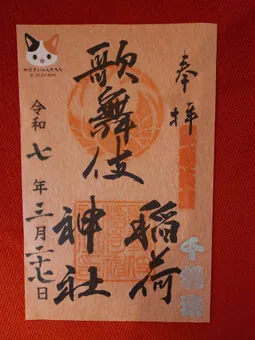 奉拝
歌舞伎
稲荷
神社
令和七年三月二十七日